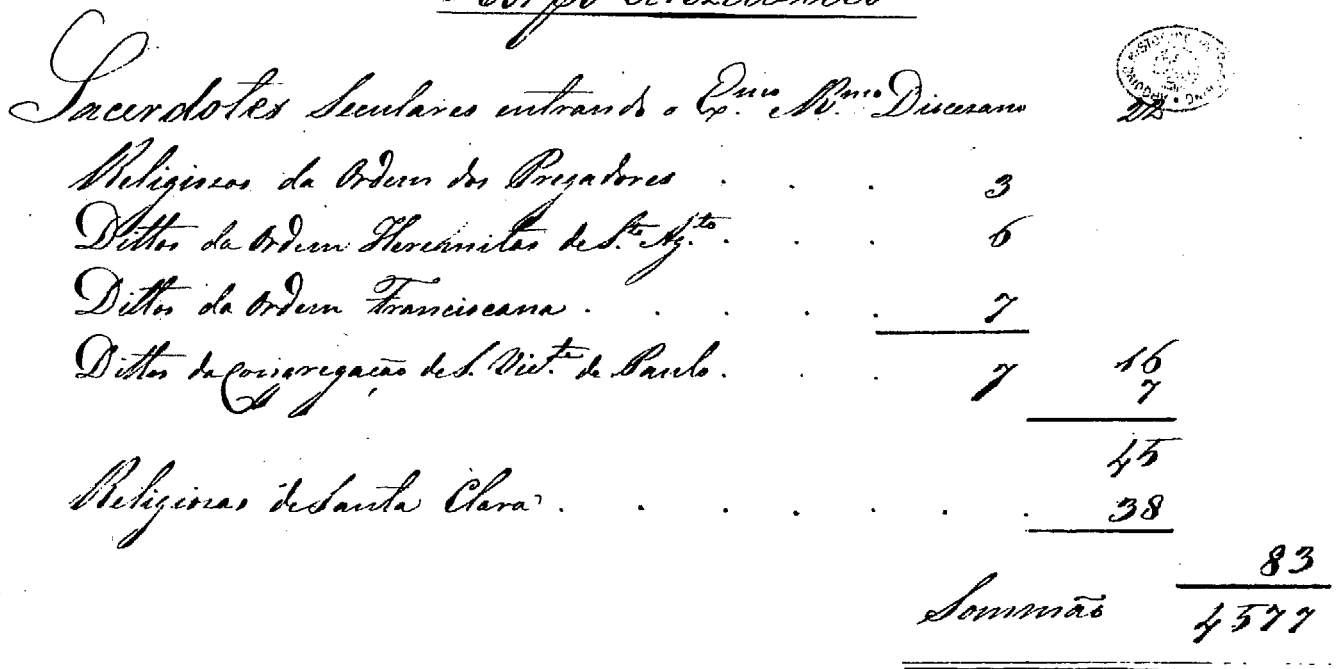 Sacerdotes Seculares entrando o Ex.mo R.mo Diocesano 22
Religiosos da Ordem dos Pregadores . . . 3
Dittos da Ordem Heremitas de S.to Ag.to . . . 6
Dittos da Ordem Franciscana . . . . . 7
16
Dittos da Congregação de S. Vic.te de Paulo . . . 7 7
45
Religiosas de Santa Clara . . . . . . . 38
83
Sommão 4577